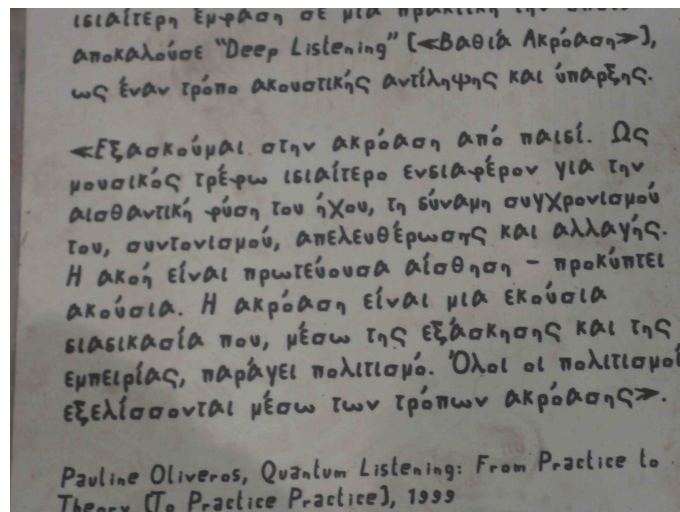 ιδιαίτερη έμφαση σε μια πρακτική την οποία
αποκαλούσε “Deep Listening” [≪Βαθιά Ακρόαση≫],
ως έναν τρόπο ακουστικής αντίληψης και ύπαρξης.
≪Εξασκούμαι στην ακρόαση από παιδί. Ως
μουσικός τρέφω ιδιαίτερο ενδιαφέρον για την
αισθαντική φύση του ήχου, τη δύναμη συγχρονισμού
του, συντονισμού, απελευθέρωσης και αλλαγής.
Η ακοή είναι πρωτεύουσα αίσθηση – προκύπτει
ακούσια. Η ακρόαση είναι μια εκούσια
διαδικασία που, μέσω της εξάσκησης και της
εμπειρίας, παράγει πολιτισμό. Όλοι οι πολιτισμοί
εξελίσσονται μέσω των τρόπων ακρόασης≫.
Pauline Oliveros, Quantum Listening: From Practice to
Theory [To Practice Practice], 1999